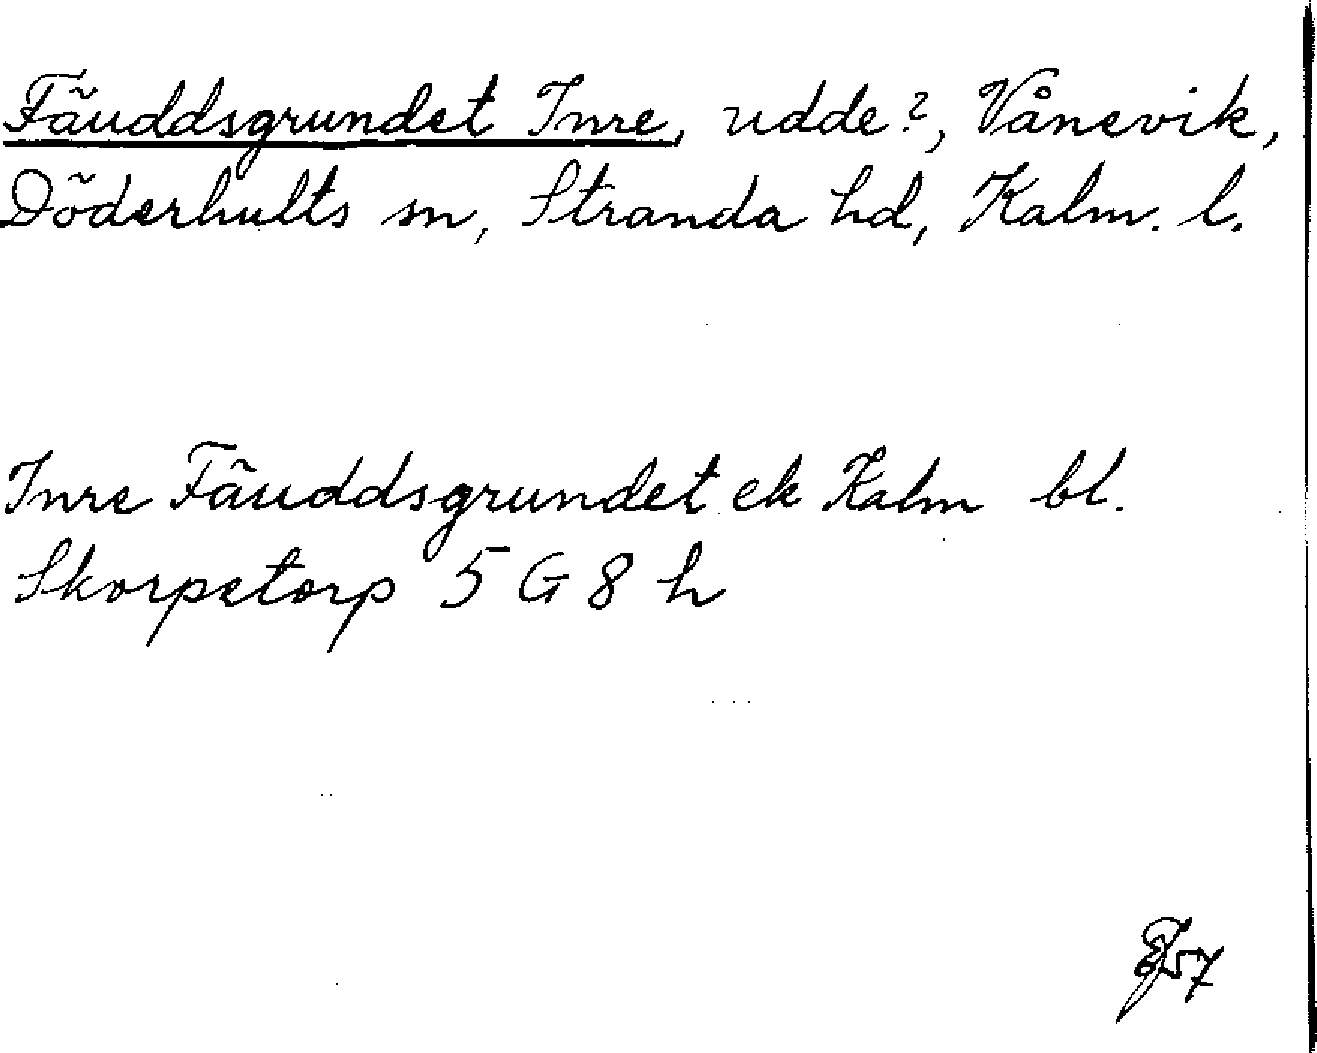 Fäuddsgrundet Inre, udde?, Vånevik,
Döderhults sn, Stranda hd, Kalm. l.
Inre Fäuddsgrundet ek Kalm bl.
Skorpetorp 5 G 8 h
57